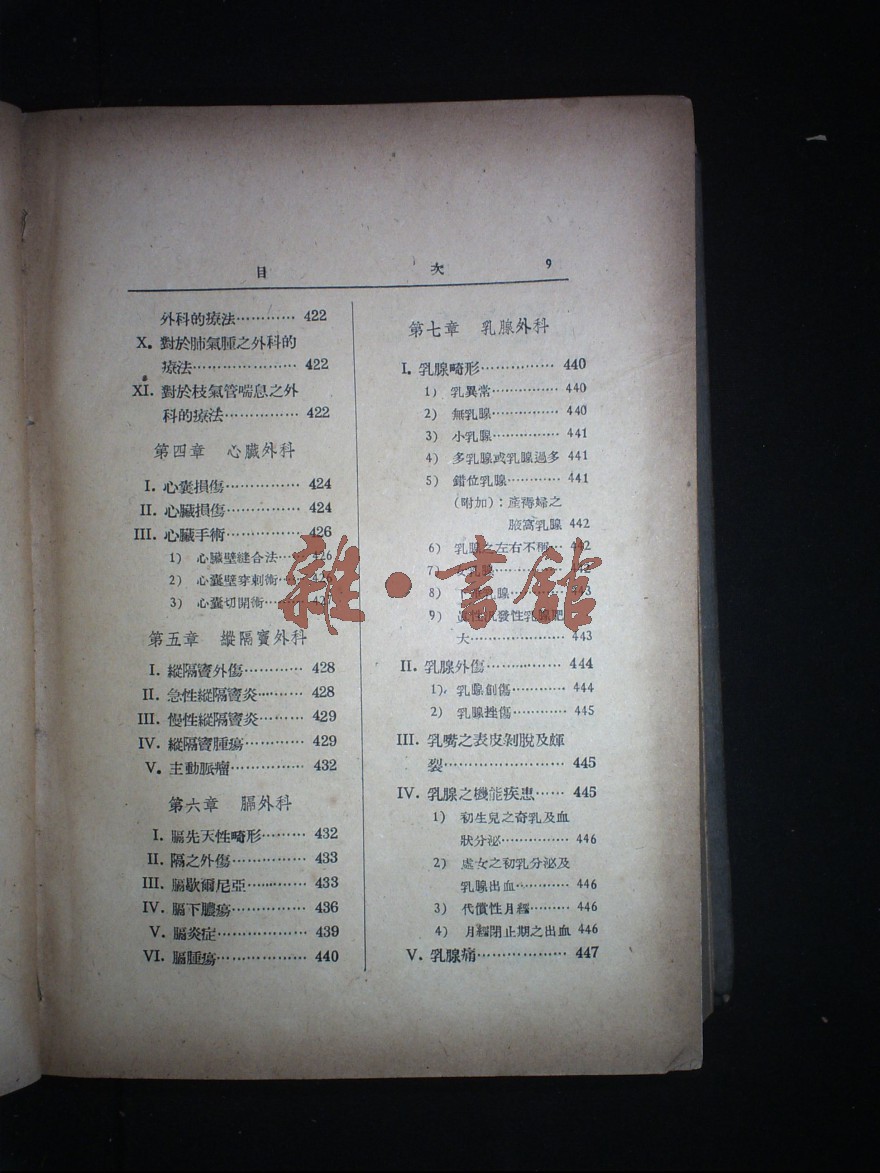 目 次 9
外科的療法………… 422
X. 對於肺氣腫之外科的
療法………………… 422
XI. 對於枝氣管喘息之外
科的療法…………… 422
第四章 心臟外科
I. 心囊損傷…………… 424
II. 心臟損傷…………… 424
III. 心臟手術…………… 426
1) 心臟壁縫合法…… 426
2) 心囊壁穿刺術…… 426
3) 心囊切開術……… 427
第五章 縱隔竇外科
I. 縱隔竇外傷………… 428
II. 急性縱隔竇炎……… 428
III. 慢性縱隔竇炎……… 429
IV. 縱隔竇腫瘍………… 429
V. 主動脈瘤…………… 432
第六章 膈外科
I. 膈先天性畸形……… 432
II. 隔之外傷…………… 433
III. 膈歇爾尼亞………… 433
IV. 膈下膿瘍…………… 436
V. 膈炎症……………… 439
VI. 膈腫瘍……………… 440
第七章 乳腺外科
I. 乳腺畸形…………… 440
1) 乳異常…………… 440
2) 無乳腺…………… 440
3) 小乳腺…………… 441
4) 多乳腺或乳腺過多 441
5) 錯位乳腺………… 441
(附加)：產褥婦之
腋窩乳腺 442
6) 乳腺之左右不稱… 442
7) 乳腺………… 442
8) 乳腺………… 443
9) 眞性汎發性乳腺肥
大……………… 443
II. 乳腺外傷…………… 444
1) 乳腺創傷………… 444
2) 乳腺挫傷………… 445
III. 乳嘴之表皮剝脫及皹
裂…………………… 445
IV. 乳腺之機能疾患…… 445
1) 初生兒之奇乳及血
狀分泌………… 446
2) 處女之初乳分泌及
乳腺出血……… 446
3) 代償性月經……… 446
4) 月經閉止期之出血 446
V. 乳腺痛……………… 447
雜·書館